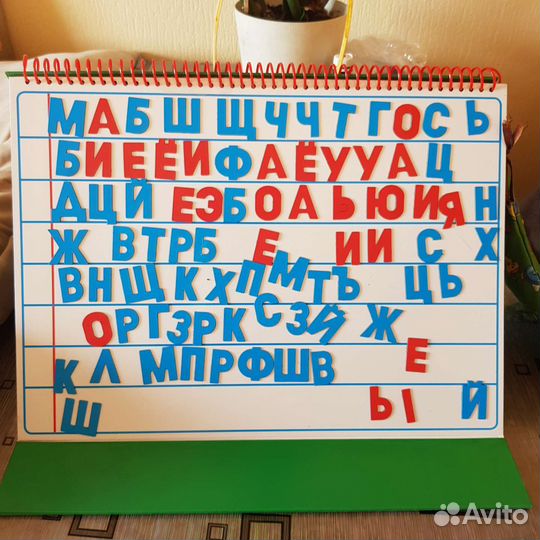 М А Б Ш Щ Ч Ч Т Г О С Ь
Б И Е Ё И Ф А Ё У У А Ц
Д Ц Й Е Э Б О А Ь Ю И Я Н
Ж В Т Р Б Е И И С Х
В Н Щ К Х П М Т Ъ Ц Ь
О Р Г З Р К С З Й Ж
К Л М П Р Ф Ш В Е
Ш Ы Й
Avito